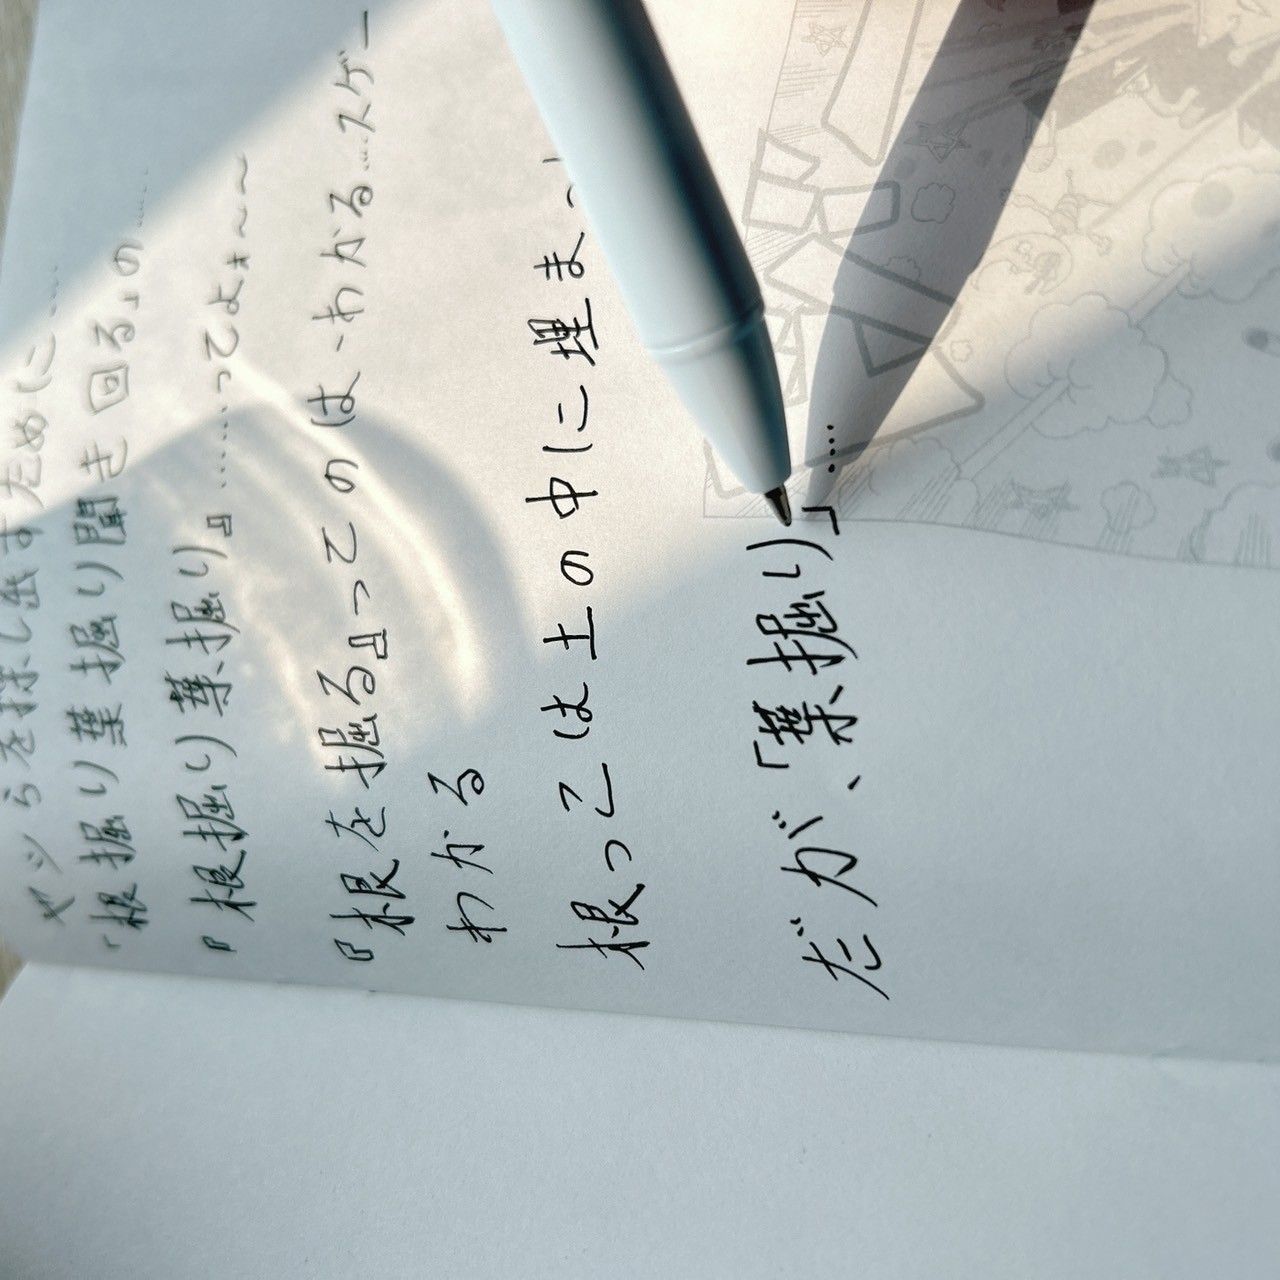 ヤツらを探し出すためにに……
「根掘り葉掘り聞き回る」の……
『根掘り葉掘り』……ってよォ～～
『根を掘る』ってのは、わかる…スゲー
わかる
根っこは土の中に埋まっ
だが、「葉掘り」……